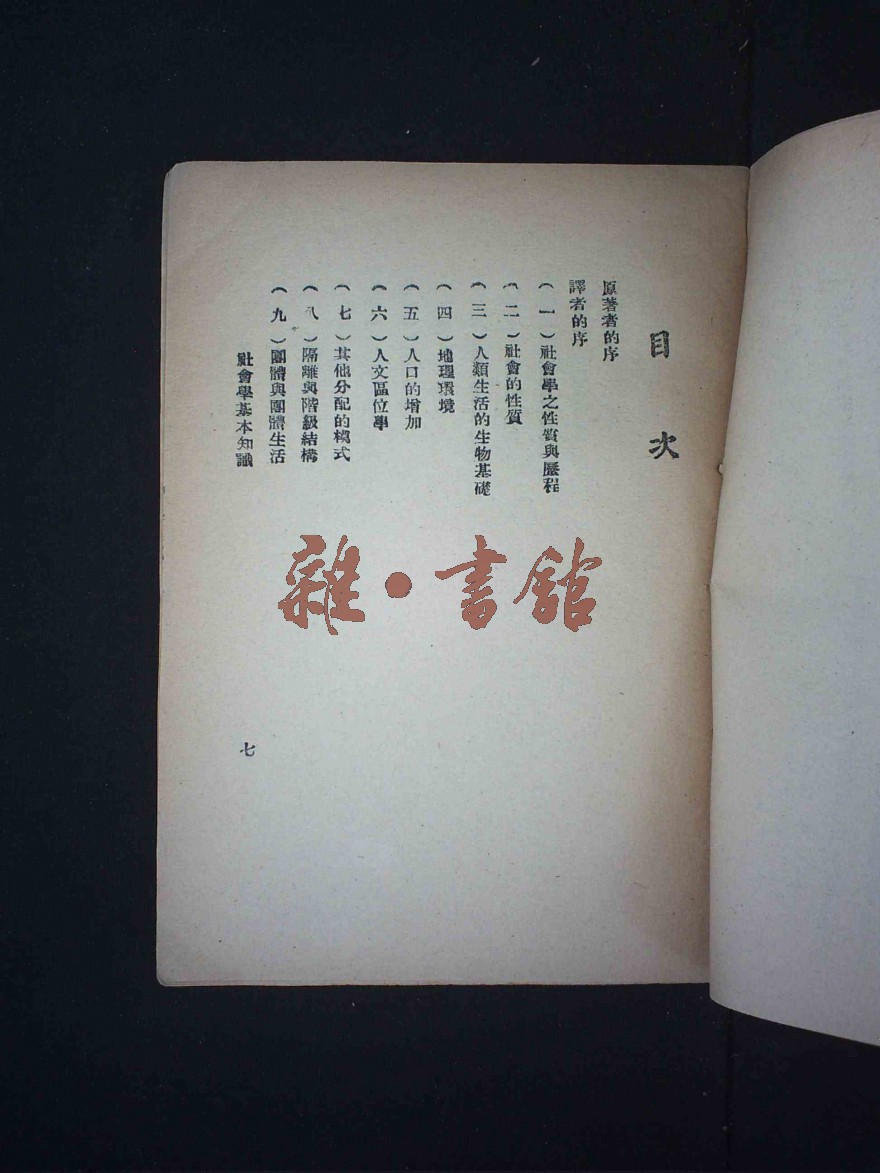 目次
原著者的序
譯者的序
(一)社會學之性質與歷程
(二)社會的性質
(三)人類生活的生物基礎
(四)地理環境
(五)人口的增加
(六)人文區位學
(七)其他分配的模式
(八)隔離與階級結構
(九)團體與團體生活
社會學基本知識
七
雜·書館